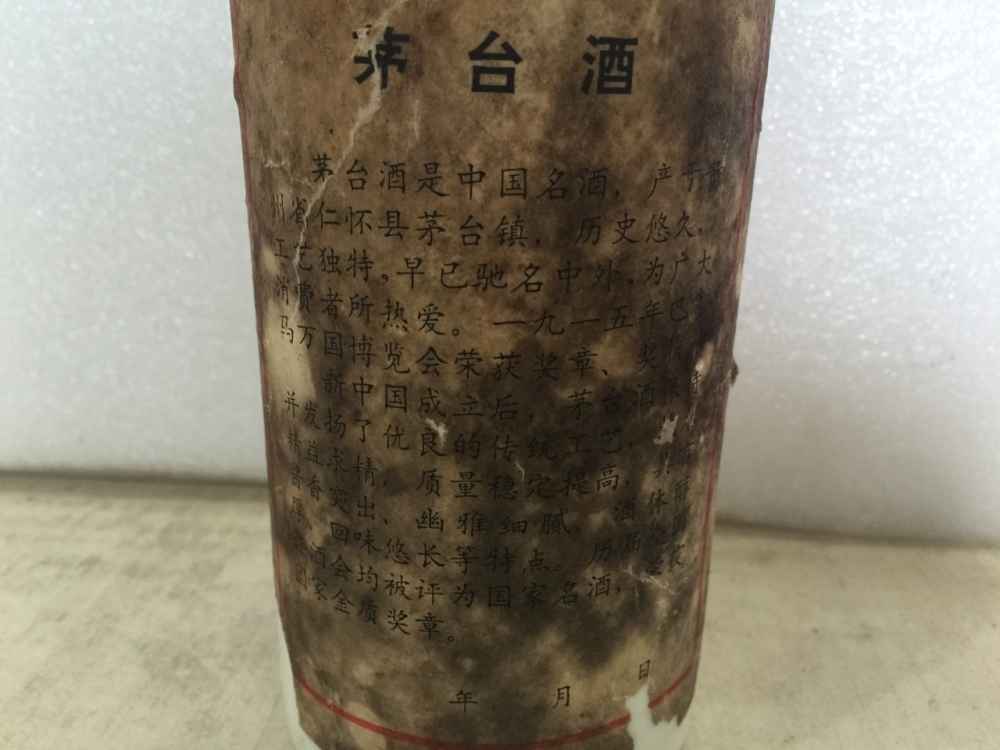 茅台酒
茅台酒是中国名酒，产于
州省仁怀县茅台镇，历史悠久，
工艺独特，早已驰名中外，为广大
消费者所热爱。一九一五年巴
马万国博览会荣获奖章、奖
新中国成立后，茅台酒保
并发扬了优良的传统工艺，
精益求精，质量稳定提高，具
香突出、幽雅细腻、酒体醇
厚 回味悠长等特点。历届
会均被评为国家名酒，
国家金质奖章。
年 月 日